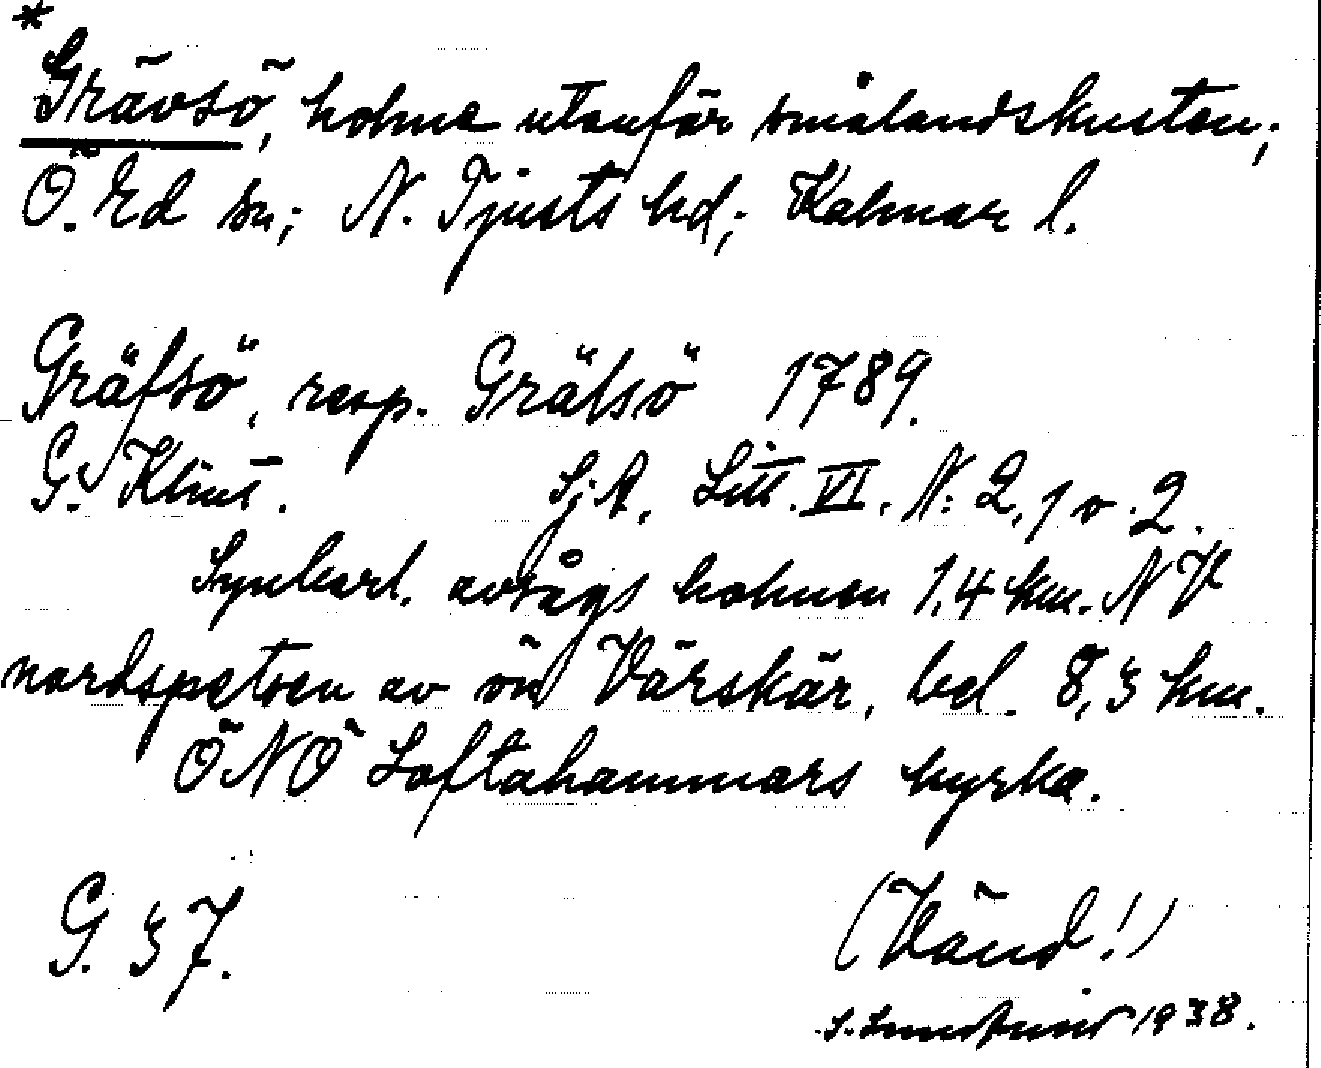 *
Grävsö, holme utanför smålandskusten;
Ö. Ed sn; N. Tjusts hd; Kalmar l.
Gräfsö, resp. Grälsö 1789.
G. Klint. Sj.A. Litt. VI. N: 2, 1 o. 2.
Synbarl. avsågs holmen 1,4 km. NV
nordspetsen av ön Vårskär, bel. 8,3 km.
ÖNÖ Loftahammars kyrka.
G. 37.
(Vänd!)
S. 1938.